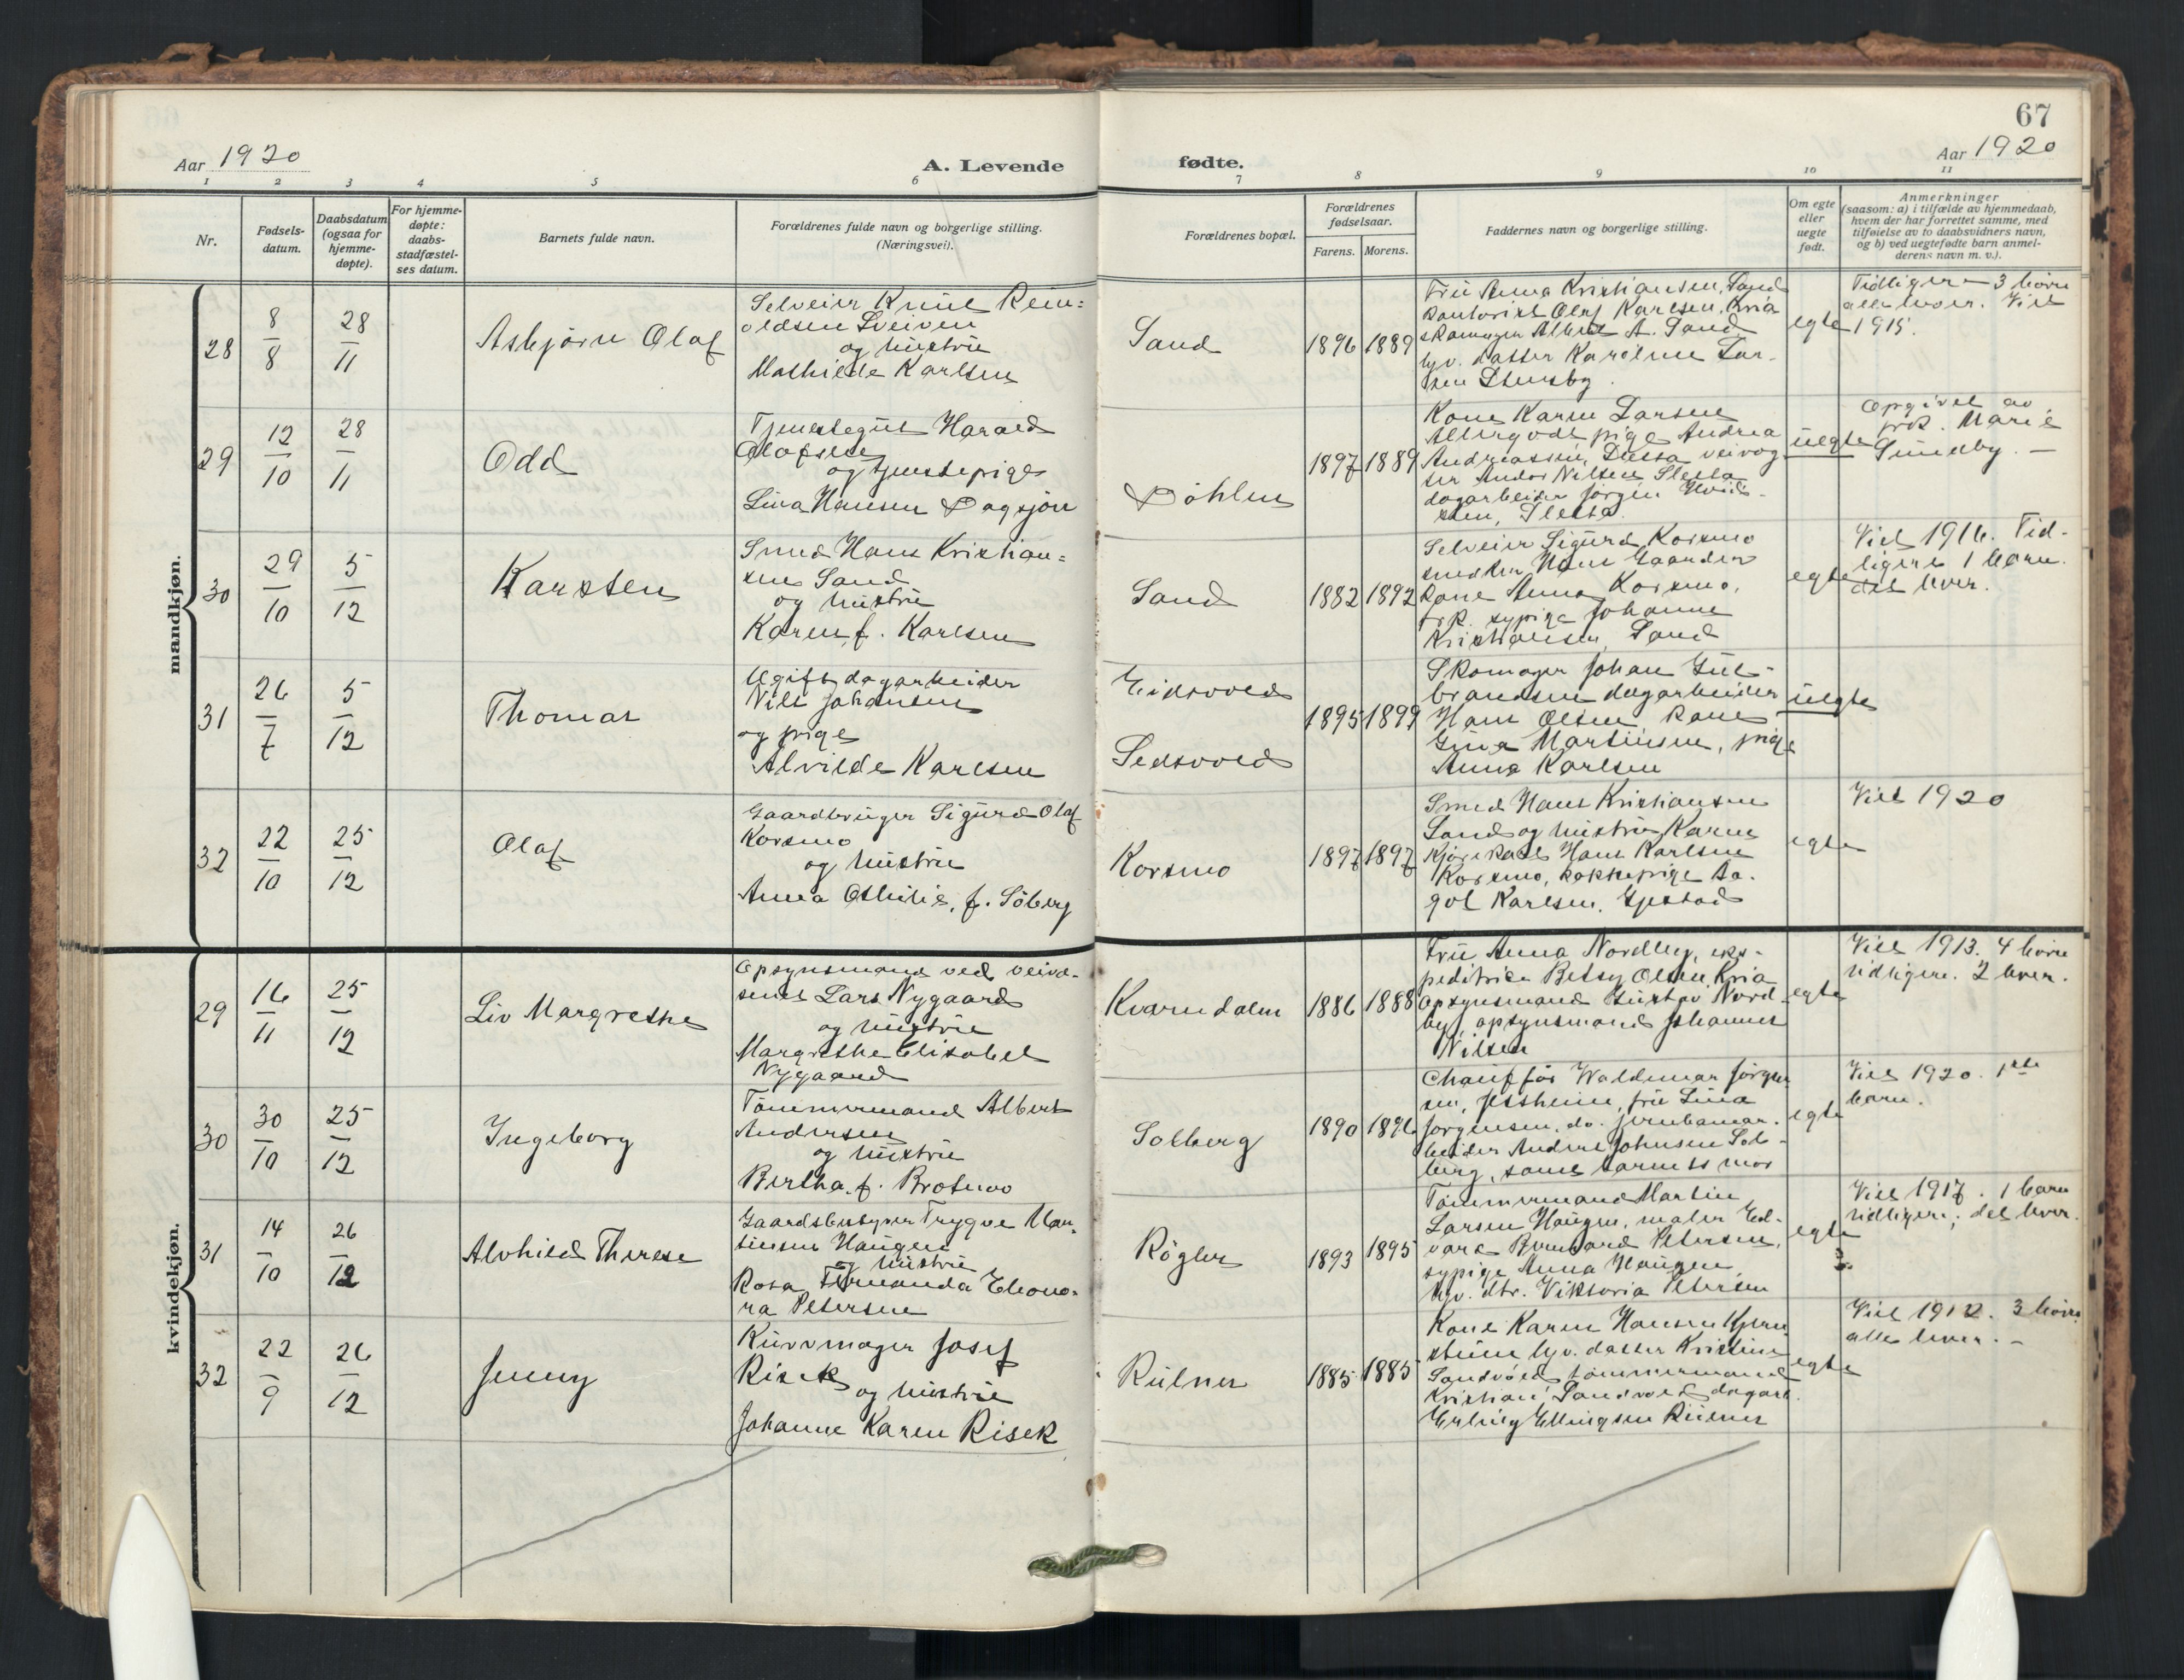 67
Aar 1920
A. Levende
fødte.
Aar 1920
1 2 3 4 5 6 7 8 9 10 11
Nr.
Fødsels-
datum.
Daabsdatum
(ogsaa for
hjemme-
døpte).
For hjemme-
døpte:
daabs-
stadfæstel-
ses datum.
Barnets fulde navn.
Forældrenes fulde navn og borgerlige stilling.
(Næringsvei).
Forældrenes bopæl.
Forældrenes
fødselsaar.
Farens. Morens.
Faddernes navn og borgerlige stilling.
Om egte
eller
uegte
født.
Anmerkninger
(saasom: a) i tilfælde av hjemmedaab,
hvem der har forrettet samme, med
tilføielse av to daabsvidners navn,
og b) ved uegtefødte barn anmel-
derens navn m. v.).
mandkjøn.
28
8/8
28/11
Asbjørn Olaf
Selveier Knut Rein=
oldsen Sveiven
og hustru
Mathilde Karlsen
Sand
1896 1889
Fru Anna Kristiansen, Sand
kontorist Olaf Karlsen, Kria
skomager Albert A. Sand
hjv. datter Karoline Lar-
sen
egte
Tidligere 3 børn
alle lever. Viet
1915.
29
12/10
28/11
Odd
Tjenestegut Harald
Olafsen
og tjenestepige
Lina Hansen Dagsjøn
Døhlen
1897 1889
Kone Karen Larsen
Algergodt pige Andrea
Andreassen, veivog
ter Andor Nilsen Sletta
dagarbeider Jørgen
Sletta.
uegte
Opgivet av
frk. Marie
Sundby. -
30
29/10
5/12
Karsten
Smed Hans Kristian=
sen Sand
og hustru
Karen, f. Karlsen
Sand
1882 1892
Selveier Sigurd Korsmo
snedker Hans Gaarder
kone Anna Korsmo,
frk. sypige Johanne
Kristiansen, Sand
egte
Viet 1916. Tid-
ligere 1 barn.
det lever.
31
26/7
5/12
Thomas
Ugift dagarbeider
Nils Johansen
og pige
Alvilde Karlsen
Eidsvold
Sedsvold
1895 1899
Skomager Johan Gul-
brandsen dagarbeider
Hans Olsen kone
Gina Martinsen, pige
Anna Karlsen
uegte
32
22/10
25/12
Olaf
Gaardbruger Sigurd Olaf
Korsmo
og hustru
Anna Othilie, f. Søberg
Korsmo
1897 1897
Smed Hans Kristiansen
Sand og hustru Karen
Kjørekarl Hans Karlsen
Korsmo, kokkepige Aa-
got Karlsen, Gjestad
egte
Viet 1920
kvindekjøn.
29
16/11
25/12
Liv Margrethe
Opsynsmand ved veivæ-
senet Lars Nygaard
og hustru
Margrethe Elisabet
Nygaard
Kverndalen
1886 1888
Fru Anna Nordby, eks-
peditrice Betsy Olsen, Kria
opsynsmand Gustav Nord-
by, opsynsmand Johannes
Nilsen
egte
Viet 1913. 4 børn
tidligere. 2 lever.
30
30/10
25/12
Ingeborg
Tømmermand Albert
Andersen
og hustru
Bertha, f. Brotmoo
Solberg
1890 1896
Chauffør Waldemar Jørgen
sen, Jessheim, fru Lina
Jørgensen, do. jernbanear-
beider Anders Johnsen Sol-
berg, samt barnets mor
egte
Viet 1920. 1ste
barn.
31
14/10
26/12
Alvhild Therese
Gaardsbestyrer Trygve Mar-
tinsen Haugen
og hustru
Rosa Fernanda Eleono-
ra Petersen
Røgler
1893 1895
Tømmermand Martin
Larsen Haugen, maler Ed-
vard Bernhard Petersen,
sypige Anna Haugen
hjv. dtr. Viktoria Petersen
egte
Viet 1917. 1 barn
tidligere; det lever.
32
22/9
26/12
Jenny
Kurvmager Josef
Risek
og hustru
Johanne Karen Risek
Rulner
1885 1885
Kone Karen Hansen
hjv. datter Kristine
Sandvold tømmermand
Kristian Sandvold dagarb.
Erling Ellingsen Rulner
egte
Viet 1912. 3 børn
alle lever. -